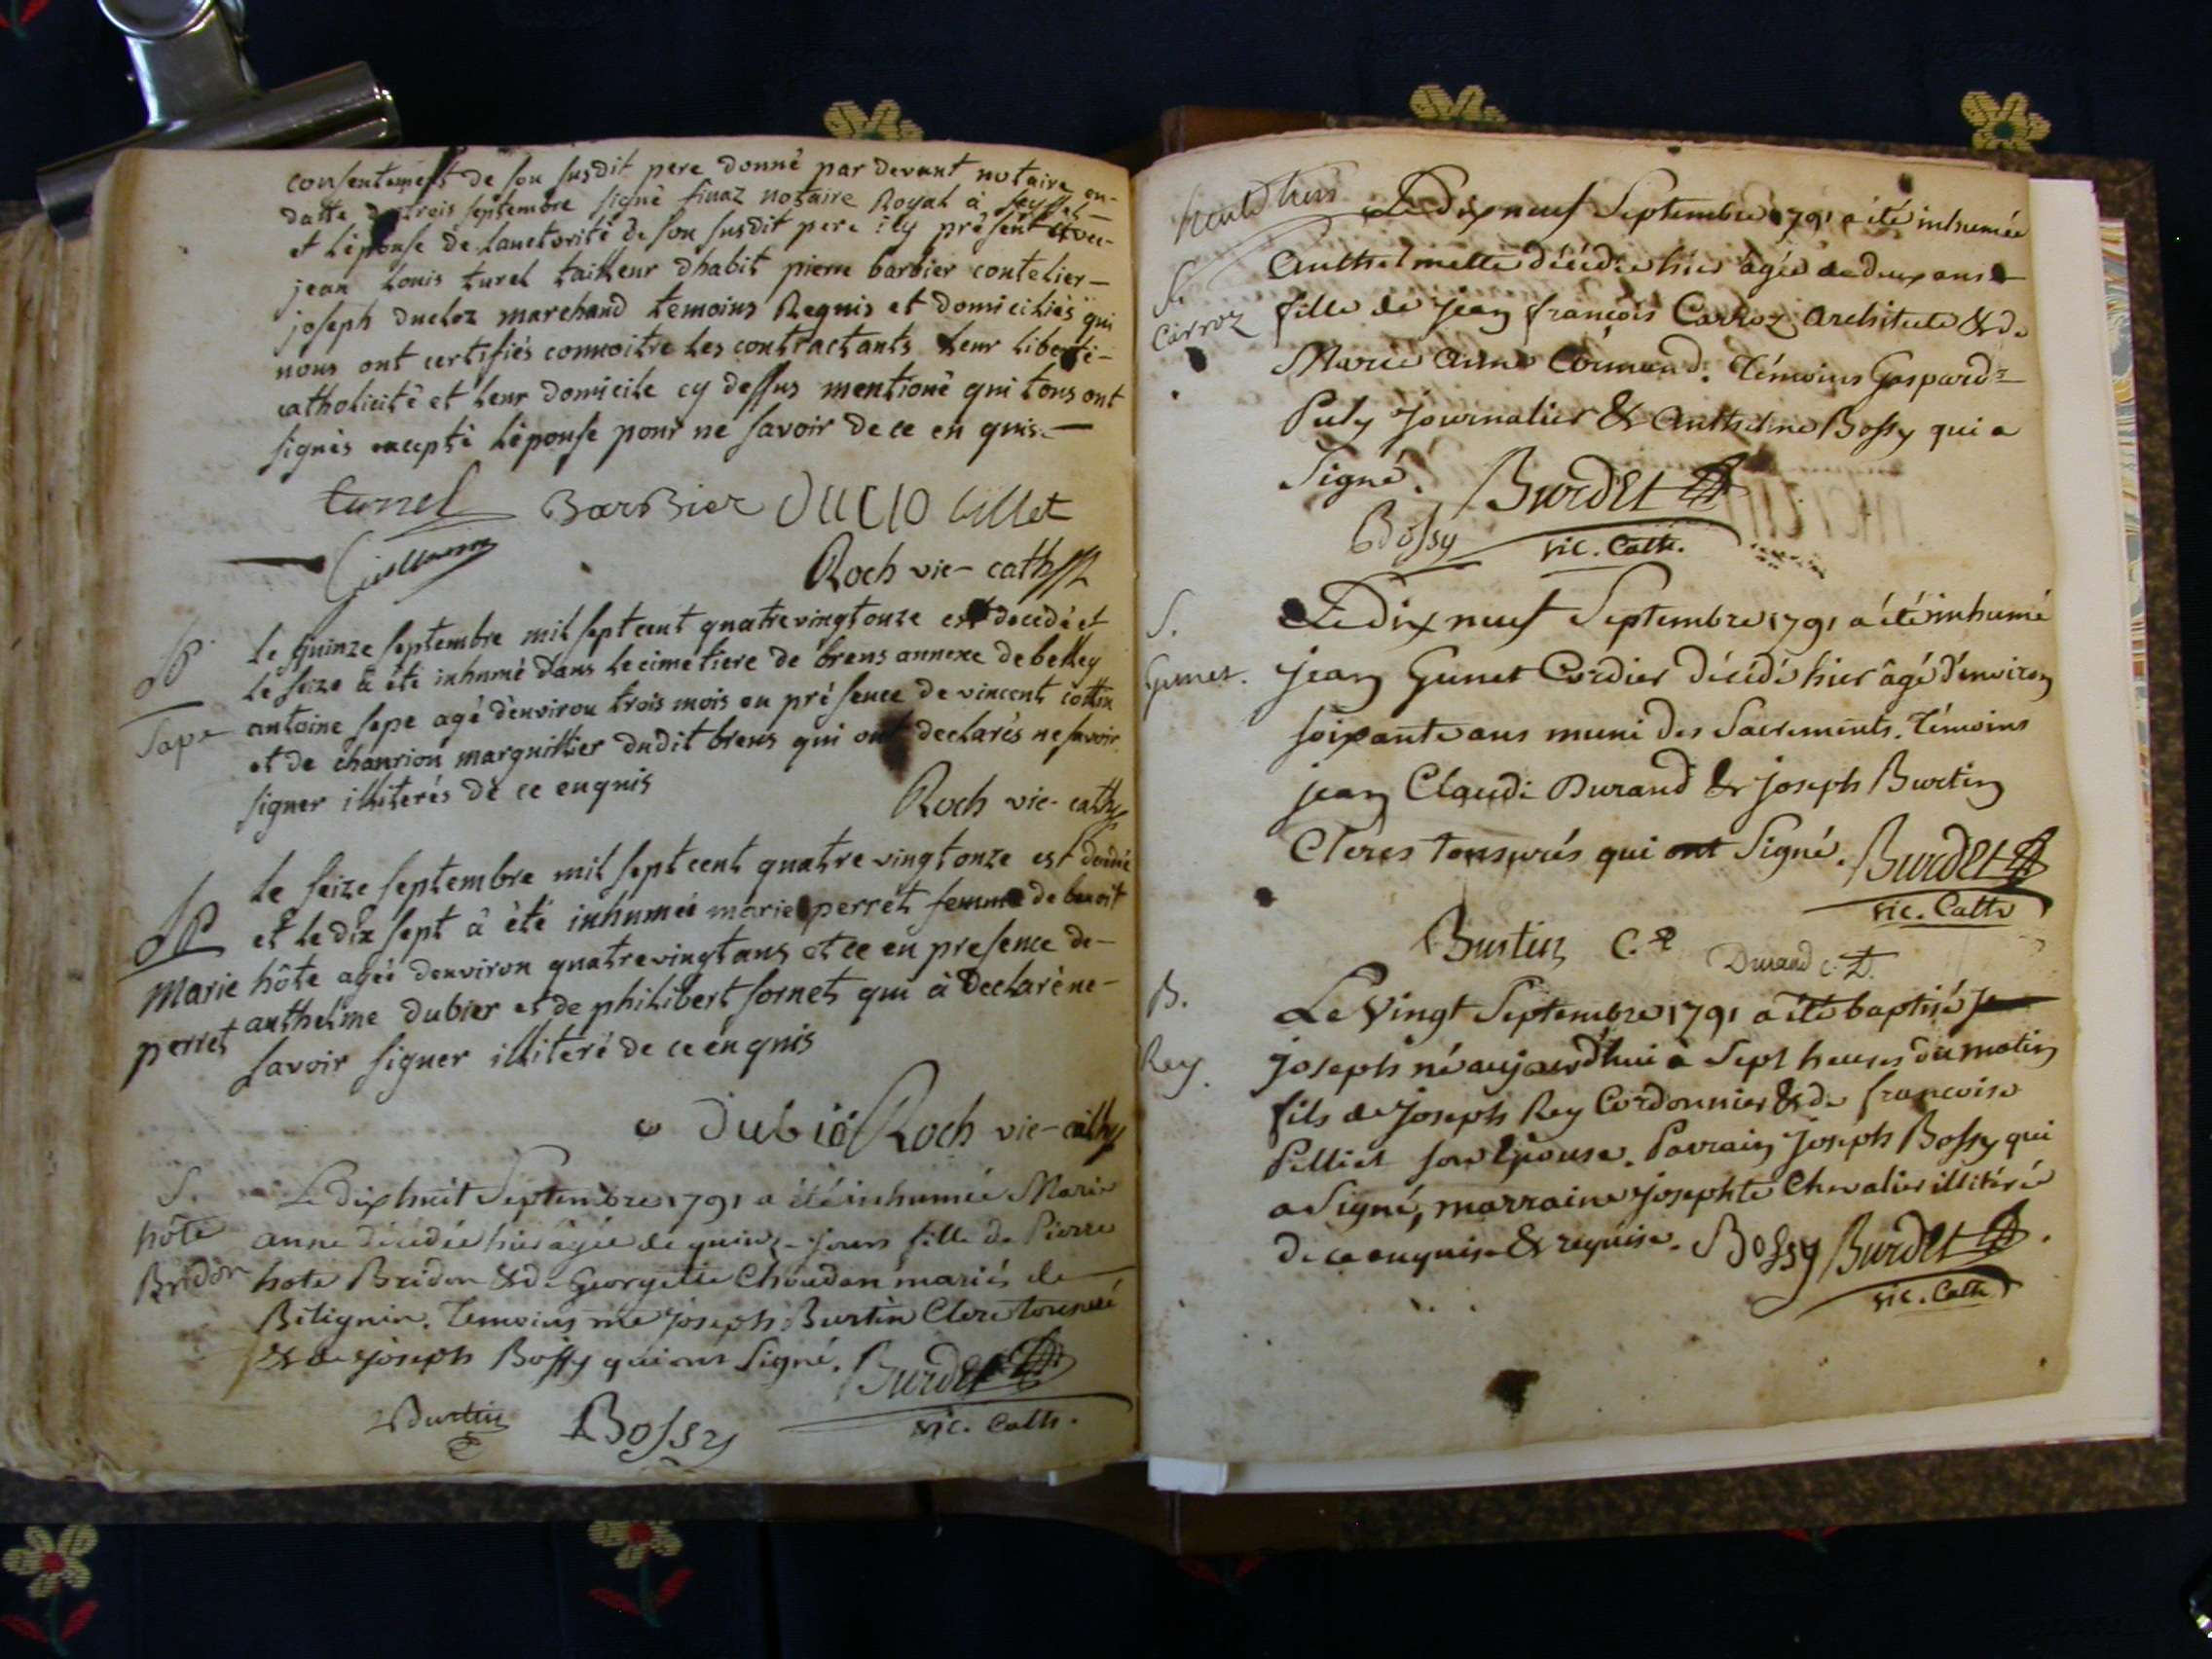 consentement de son susdit pere donné par devant notaire en-
datte du trois septembre signé finaz notaire Royal à seyssel-
et lépouse de lauctorité de son susdit pere icy présent et avec-
jean louis turel tailleur dhabit pierre barbier coutelier-
joseph ducloz marchand temoins Requis et domiciliés qui
nous ont certifiés connoitre les contractants leur liberté-
catholicité et leur domicile cy dessus mentioné qui tous ont
signés excepté lépouse pour ne savoir de ce en quis.-
turrel BarBier DUCLO
Guillaume
Roch vic- cath
le quinze septembre mil sept cent quatrevingt onze est decedé et
le seize a été inhumé dans le cimetiere de brens annexe de belley
Sape antoine sepe agé denviron trois mois en présence de vincent cottin
et de chanrion marguillier dudit brens qui ont declarés ne savoir
signer illiterés de ce enquis
Roch vic- cath
le seize septembre mil sept cent quatre vingt onze est decedé
et le dix sept à été inhumée marie perret femme de benoit
Marie hôte agée denviron quatrevingt ans et ce en presence de-
perret anthelme dubier et de philibert sornet qui à declaré ne-
savoir signer illiteré de ce en quis
dubié Roch vic- cath
S. Le dix huit Septembre 1791 a été inhumée Marie
hôte anne décédée hier âgée de quinze jours fille de Pierre
Bridon hote Bridon & de Georgette Choudan mariés de
Bitignin. Temoins me joseph Burtin Clerc tonsuré
& de joseph Bossy qui ont Signé. Burdet
Burtin Bossy vic. Cath.
Le Dix neuf Septembre 1791 a été inhumée
S. Anthelmette décédée hier âgée de deux ans
Carroz fille de jean françois Carroz architecte & de
Marie anne Cormand. Témoins Gaspard
Puly journalier & Anthelme Bossy qui a
Signé. Burdet
Bossy vic. Cath.
S. Le dix neuf Septembre 1791 a été inhumé
Gunet. jean Gunet Cordier décédé hier âgé d'environ
soixante ans muni des Sacrements. Témoins
jean Claude Durand & joseph Burtin
Clercs tonsurés qui ont Signé. Burdet
vic. Cath
Burtin C. Durand c. t.
B. Le Vingt Septembre 1791 a été baptisé
Rey. joseph né aujourd'hui à Sept heures du matin
fils de joseph Rey Cordonnier & de francoise
Pelliet son épouse. Parrain joseph Bossy qui
a Signé, marraine josephte Chevalier illitérée
de ce enquise & requise. Bossy Burdet
vic. Cath